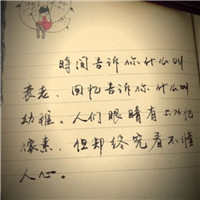 時间告诉你什么叫
衰老，回忆告诉你什么叫
幼稚。人们眼睛有5.76亿
像素，但却终究看不懂
人心。